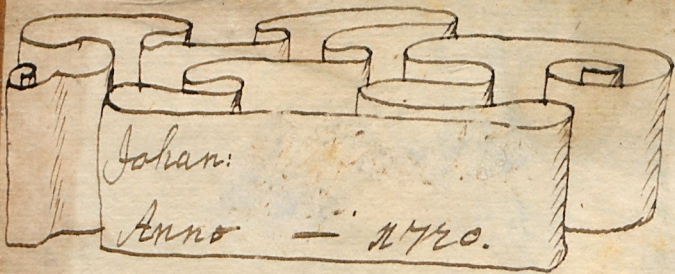 Johan:
Anno — 1770.